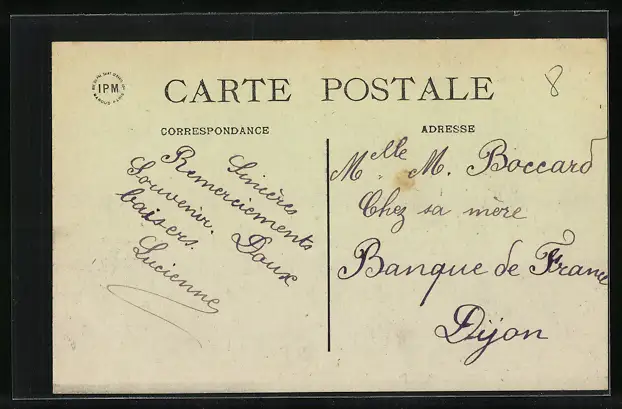 IPM
CARTE POSTALE
8
CORRESPONDANCE
ADRESSE
Sincères
Remerciements
Souvenir. Doux
baisers.
Lucienne
Melle M. Boccard
Chez sa mère
Banque de France
Dijon